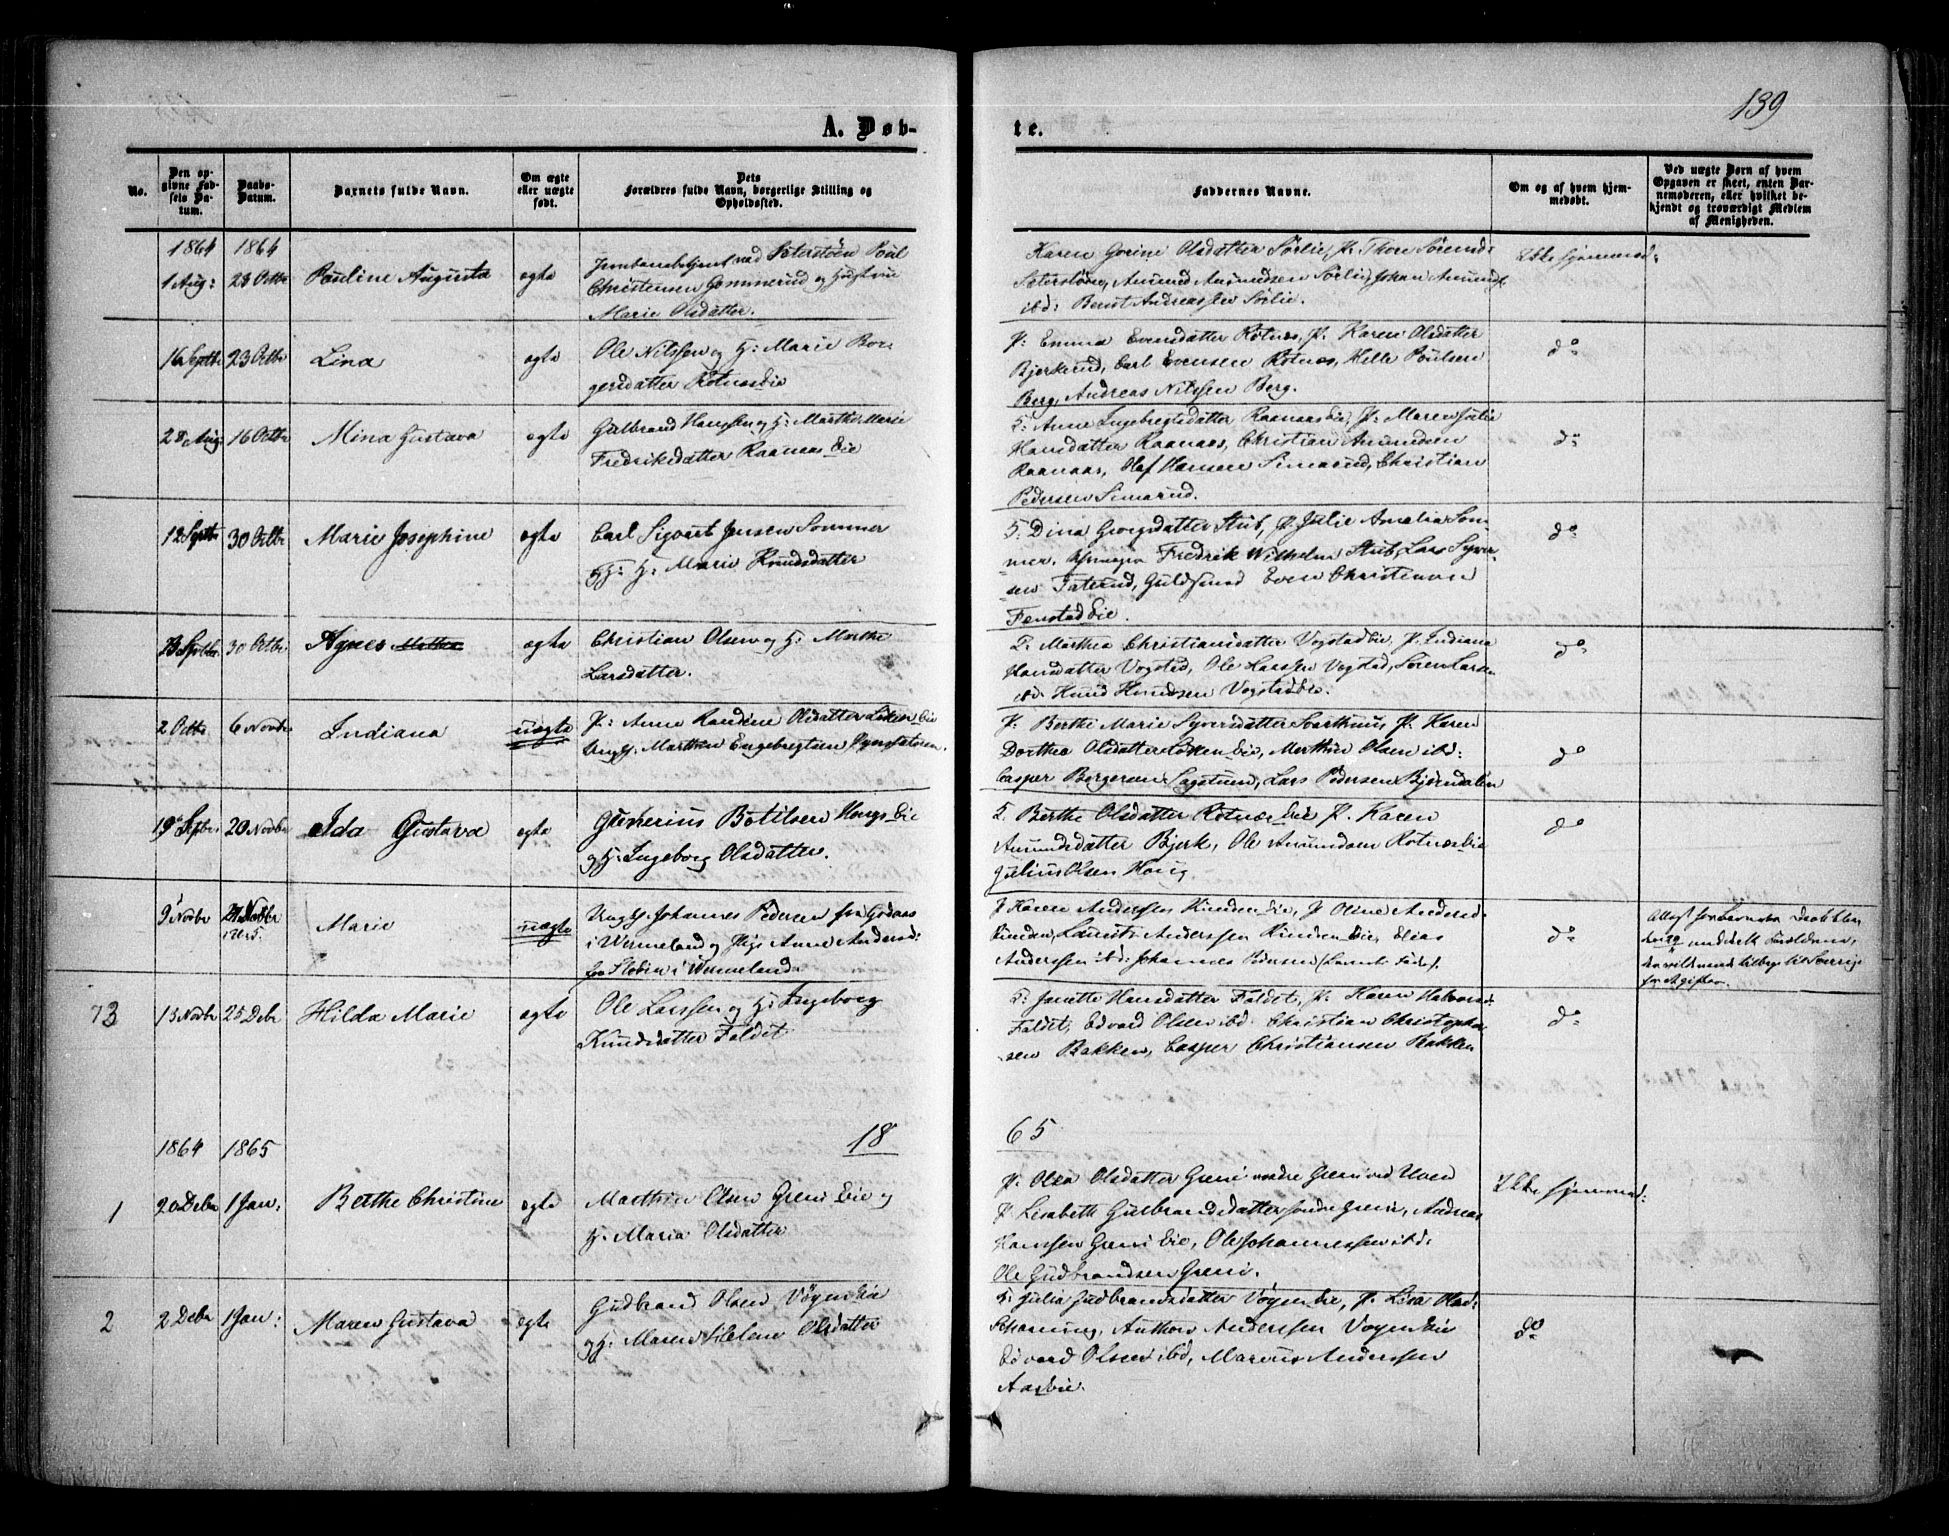 139
A. Døb-
te.
No.
Den op-
givne Fød-
sels Da-
tum.
Daabs-
Datum.
Barnets fulde Navn.
Om ægte
eller uægte
født.
Dets
Forældres fulde Navn, borgerlige Stilling og
Opholdssted.
Faddernes Navne.
Om og af hvem hjem-
medøbt.
Ved uægte Børn af hvem
Opgaven er skeet, enten Bar-
nemoderen, eller hvilket be-
kjendt og troværdigt Medlem
af Menigheden.
1864 1864
1 Aug: 23 Octbr Pauline Augusta ægte
Jernbanebetjent ved Seterstøen Poul
Christensen Gommerud og Hustrue
Marie Olsdatter.
Karen Gorine Olsdatter Sørlie, P. Thore Sørensd:
Seterstøen, Amund Amundsen Sørlie, Johan Amunds
ibd: Bernt Andreassen Sørlie.
Ikke hjemmed:
16 Septbr 23 Octbr Lina ægte
Ole Nilssen og H: Marie Bor-
gersdatter Rotnæseie
P: Emma Evensdatter Rotnæs, P. Karen Olsdatter
Bjerkerud, Carl Evensen Rotnæs, Helle Poulsen
Berg, Andreas Nilssen Berg.
do
28 Aug 16 Octbr Mina Gustava ægte
Gulbrand Hanssen og H: Marthe Marie
Fredriksdatter Raanaas Eie
G: Anne Ingebregtsdatter Raanaaseie, P. Maren Julie
Hansdatter Raanaas, Christian Amundsen
Raanaas, Olaf Hansen Simarud, Christian
Pedersen Simarud.
do
12 Septbr 30 Octbr Marie Josephine ægte
Carl Sigvart Jensen Sommer
og H: Marie Knudsdatter
G: Dina Georgsdatter Stub, P. Julie Amalia Som-
mer, Fredrik Wilhelm Stub, Lars Syver-
sen Taterud, Guldsmed Even Christiansen
Fenstad Eie.
do
Septbr 30 Octbr Agnes Mathea ægte
Christian Olsen og H: Marthe
Larsdatter.
G. Marthea Christiansdatter Vogstadeie, P. Indiana
Hansdatter Vogstad, Ole Larssen Vogstad, Søren Larsen
ibd. Knud Knudsen Vogstadeie.
do
2 Octbr 6 Novbr Indiana uægte
P: Anne Randine Olsdatter Løken Eie
Ungk. Marthin Engebregtsen
P: Berthe Marie Syversdatter Svarthuus, P. Karen
Dorthea Olsdatter Løken Eie, Marthin Olsen ibd:
Casper Borgersen Sagstuen, Lars Pedersen Bjørndalen
do
19 Septbr: 20 Novbr Ida Gustava ægte
Gunerius Botilsen Hougs Eie
og H: Ingeborg Olsdatter.
G. Berthe Olsdatter Rotnæs Eie P. Karen
Amundsdatter Bjerk, Ole Amundsen Rotnæs Eie
Julius Olsen Houg
do
9 Novbr 27 Novbr Marie uægte
Ungk. Johannes Pedersen fra
i Wermeland og Pige Anne Andersd:
fra i Wermeland
P Karen Andersen Kinden Eie, P Oline Andersd:
Kinden, Laurits Anderssen Kinden Eie, Elias
Anderssen ibd: Johannes Pedersen
do
73 13 Novbr 25 Debr Hilda Marie ægte
Ole Larssen og H: Ingeborg
Knudsdatter Faldet
G: Janette Hansdatter Faldet, P. Karen Halvorsd:
Faldet, Edvard Olsen ibd. Christian Christopher-
sen Bakken, Casper Christiansen Bakken
do
18 65
1864 1865
1 20 Debr 1 Jan: Berthe Christine ægte
Marthin Olsen Greni Eie og
H: Maria Olsdatter
P. Olea Olsdatter Greni nordre Greni ved
P. Lisabeth Gulbrandsdatter søndre Greni, Andreas
Hanssen Greni Eie, Ole Johannessen ibd:
Ole Gudbrandsen Greni.
Ikke hjemmed:
2 2 Debr 1 Jan: Maren Gustava ægte
Gudbrand Olsen Vøyen Eie
og H: Maren Helene Olsdatter
G: Julia Gudbrandsdatter Vøyen Eie, P. Lisa Olsd:
Schanning, Anthon Anderssen Vøyen Eie
Edvard Olsen ibd, Marius Anderssen
Aas Eie.
do